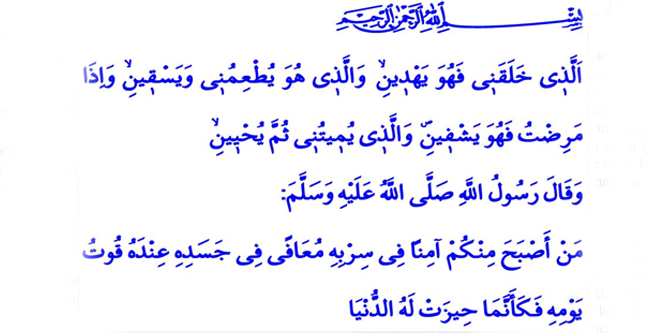 بِسْــــــــمِ اللهِ الرَّحْمٰنِ الرَّحِيمِ
اَلَّذ۪ى خَلَقَن۪ى فَهُوَ يَهْد۪ينِۙ وَالَّذ۪ى هُوَ يُطْعِمُن۪ى وَيَسْق۪ينِۙ وَاِذَا
مَرِضْتُ فَهُوَ يَشْف۪ينِۖ وَالَّذ۪ى يُم۪يتُن۪ى ثُمَّ يُحْي۪ينِۙ
وَقَالَ رَسُولُ اللَّهِ صَلَّى اللَّهُ عَلَيْهِ وَسَلَّمَ:
مَنْ أَصْبَحَ مِنْكُمْ آمِنًا فِى سِرْبِهِ مُعَافًى فِى جَسَدِهِ عِنْدَهُ قُوتُ
يَوْمِهِ فَكَأَنَّمَا حِيزَتْ لَهُ الدُّنْيَا